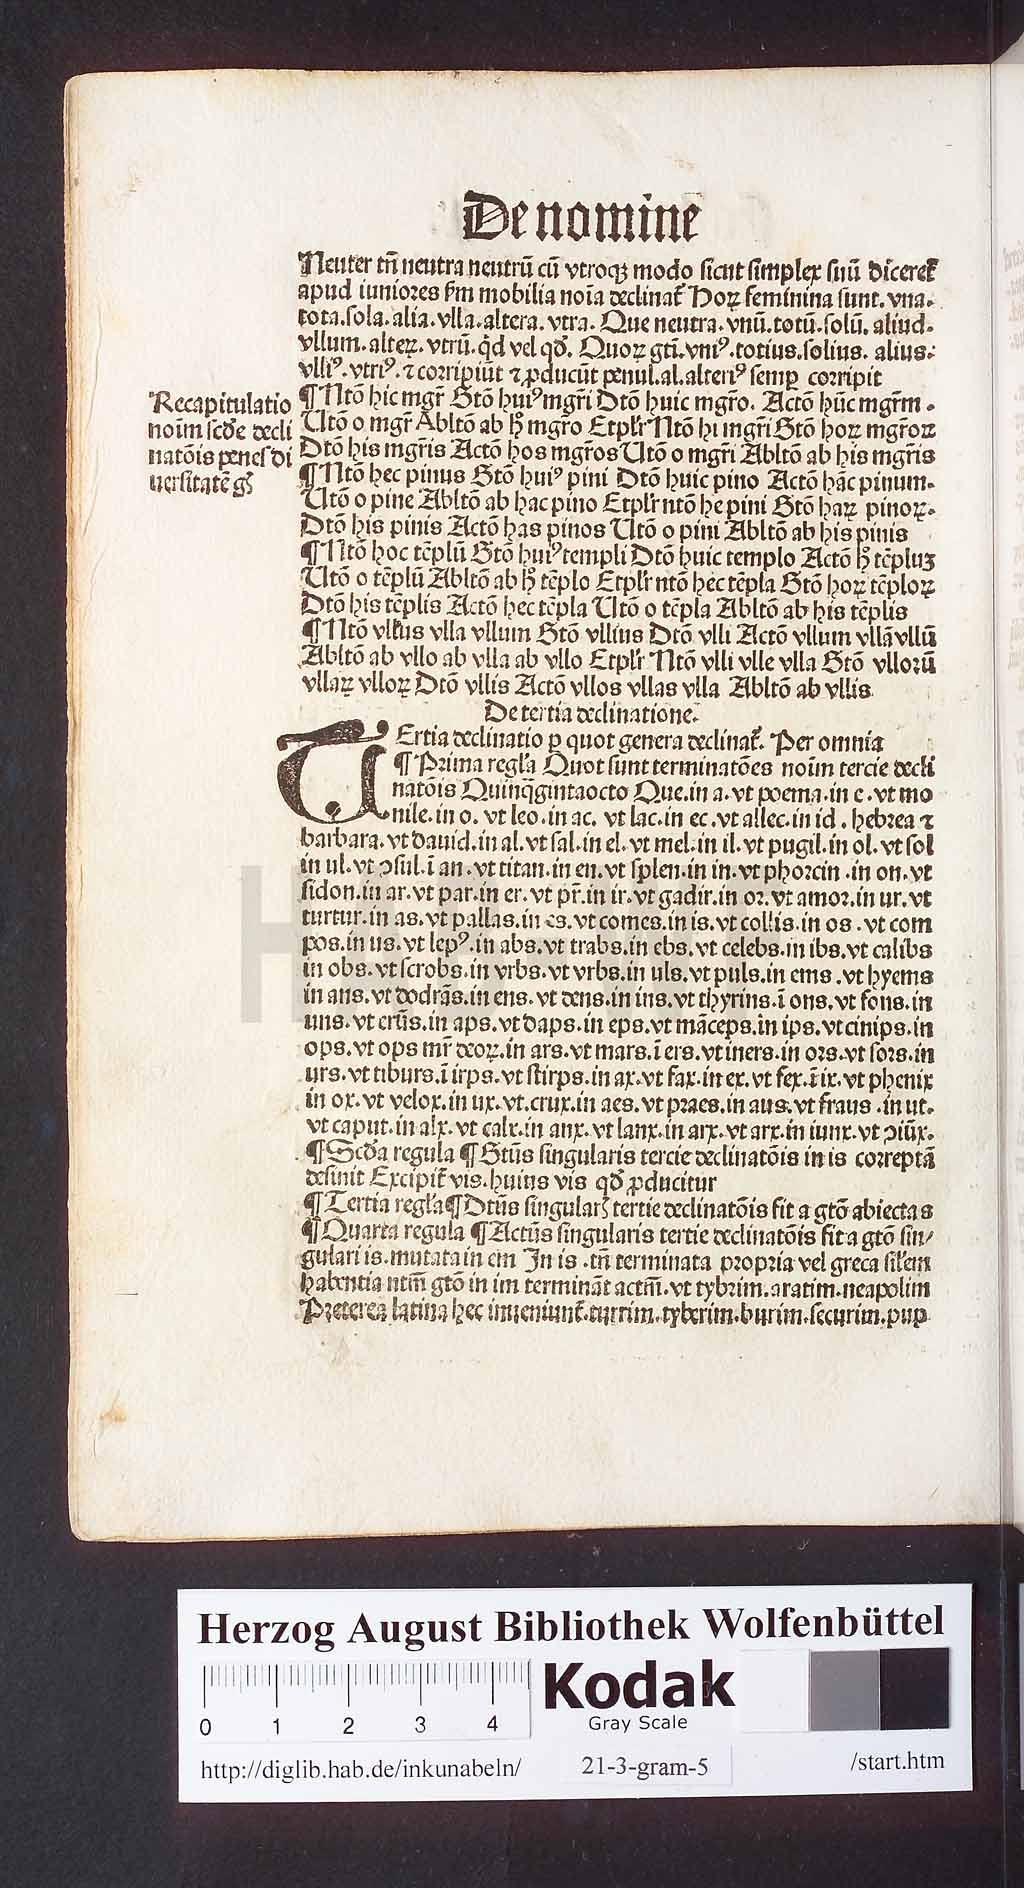 De nomine
Neuter tñ neutra neutrũ cũ vtroqꝫ modo sicut simplex suũ diceret̃
apud iuniores ẜm mobilia noĩa declinat̃ Hoꝝ feminina sunt. vna.
tota.sola.alia.vlla.altera.vtra. Que neutra.vnũ.totũ.solũ.aliud.
vllum.alteꝝ.vtrũ.q̃d vel qđ. Quoꝝ gtĩ.vniꝰ.totius.solius.alius.
vlliꝰ.vtriꝰ.⁊ corripiũt ⁊ ꝓducũt penul.al.alteriꝰ semꝑ corripit
Recapitulatio
noĩm scđe decli
natõis penes di
uersitatẽ gñ
¶ Ntõ hic mgr̃ Gtõ huiꝰ mgr̃i Dtõ huic mgr̃o. Actõ hũc mgr̃m.
Utõ o mgr̃ Abltõ ab hͦ mgr̃o Etpłr Ntõ hi mgr̃i Gtõ hoꝝ mgr̃oꝝ
Dtõ his mgr̃is Actõ hos mgr̃os Utõ o mgr̃i Abltõ ab his mgr̃is
¶ Ntõ hec pinus Gtõ huiꝰ pini Dtõ huic pino Actõ hãc pinum.
Utõ o pine Abltõ ab hac pino Etpłr ntõ he pini Gtõ haꝝ pinoꝝ.
Dtõ his pinis Actõ has pinos Utõ o pini Abltõ ab his pinis
¶ Ntõ hoc tẽplũ Gtõ huiꝰ templi Dtõ huic templo Actõ hͦ tẽpluꝫ
Utõ o tẽplũ Abltõ ab hͦ tẽplo Etpłr ntõ hec tẽpla Gtõ hoꝝ tẽploꝝ
Dtõ his tẽplis Actõ hec tẽpla Utõ o tẽpla Abltõ ab his tẽplis
¶ Ntõ vllus vlla vllum Gtõ vllius Dtõ vlli Actõ vllum vllã vllũ
Abltõ ab vllo ab vlla ab vllo Etpłr Ntõ vlli vlle vlla Gtõ vlloꝛũ
vllaꝝ vlloꝝ Dtõ vllis Actõ vllos vllas vlla Abltõ ab vllis
De tertia declinatione.
TErtia declinatio ꝑ quot genera declinat̃. Per omnia
¶ Prima regła Quot sunt terminatões noĩm tercie decli
natõis Quinq̃gintaocto Que.in a.vt poema.in e.vt mo
nile.in o.vt leo.in ac.vt lac.in ec.vt allec.in id.hebrea ⁊
barbara.vt dauid.in al.vt sal.in el.vt mel.in il.vt pugil.in ol.vt sol
in ul.vt ↄsul.ĩ an.vt titan.in en.vt splen.in in.vt phorcin.in on.vt
sidon.in ar.vt par.in er.vt pr̃.in ir.vt gadir.in or.vt amor.in ur.vt
turtur.in as.vt pallas.in es.vt comes.in is.vt collis.in os.vt com
pos.in us.vt lepꝰ.in abs.vt trabs.in ebs.vt celebs.in ibs.vt calibs
in obs.vt scrobs.in vrbs.vt vrbs.in uls.vt puls.in ems.vt hyems
in ans.vt dodrãs.in ens.vt dens.in ins.vt thyrins.ĩ ons.vt fons.in
uns.vt erũs.in aps.vt daps.in eps.vt mãceps.in ips.vt cinips.in
ops.vt ops mr̃ deoꝝ.in ars.vt mars.ĩ ers.vt iners.in ors.vt sors.in
urs.vt tiburs.ĩ irps.vt stirps.in ax.vt fax.in ex.vt fex.ĩ ix.vt phenix
in ox.vt velox.in ux.vt.crux.in aes.vt praes.in aus.vt fraus.in ut.
vt caput.in alx.vt calx.in anx.vt lanx.in arx.vt arx.in iunx.vt ↄiũx.
¶ Scđa regula ¶ Gtũs singularis tercie declinatõis in is correptã
desinit Excipit̃ vis.huius vis qđ ꝓducitur
¶ Tertia regła ¶ Dtũs singularꝭ tertie declinatõis fit a gtõ abiecta s
¶ Quarta regula ¶ Actũs singularis tertie declinatõis fit a gtõ sin/
gulari is.mutata in em In is.tñ terminata propria vel greca siłem
habentia ntm̃ gtõ in im terminãt actm̃.vt tybrim.aratim.neapolim
Preterea latina hec inueniunt̃.turrim.tyberim.burim.securim.pup
Herzog August Bibliothek Wolfenbüttel
0 1 2 3 4
Kodak
Gray Scale
http://diglib.hab.de/inkunabeln/ 21-3-gram-5 /start.htm